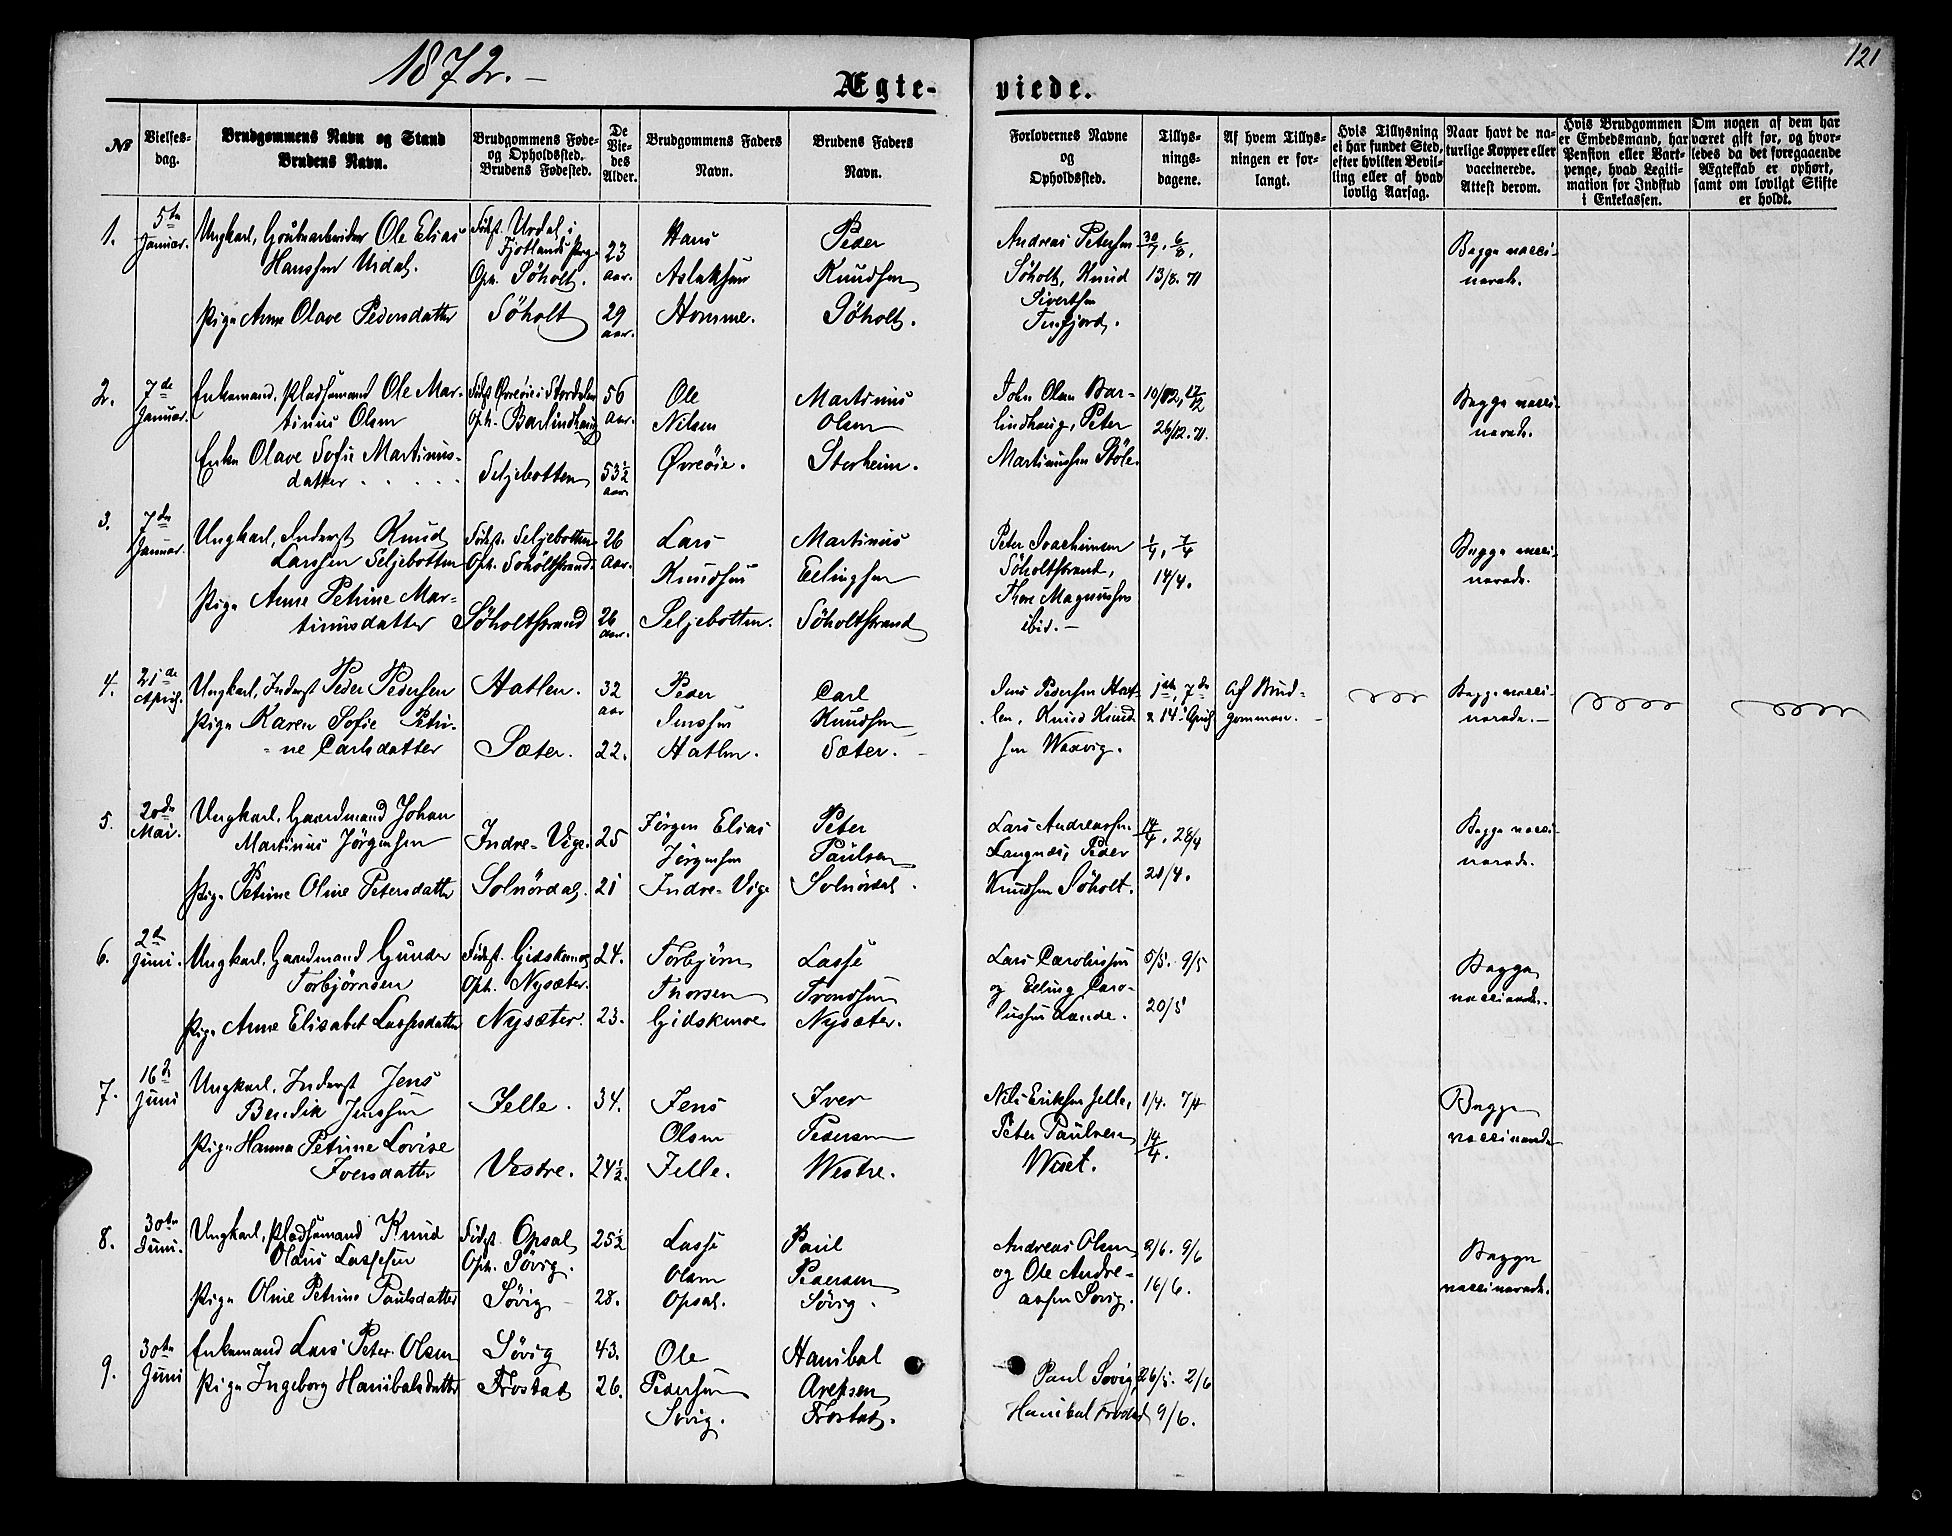 1872.
121
Ægte-
viede.
№
Vielses-
dag.
Brudgommens Navn og Stand
Brudens Navn.
Brudgommens Føde-
og Opholdssted.
Brudens Fødested.
De
Vie-
des
Alder.
Brudgommens Faders
Navn.
Brudens Faders
Navn.
Forlovernes Navne
og
Opholdssted.
Tillys-
nings-
dagene.
Af hvem Tillys-
ningen er for-
langt.
Hvis Tillysning
ei har fundet Sted,
efter hvilken Bevil-
ling eller af hvad
lovlig Aarsag.
Naar havt de na-
turlige Kopper eller
vaccinerede.
Attest derom.
Hvis Brudgommen
er Embedsmand, har
Pension eller Vart-
penge, hvad Legiti-
mation for Indskud
i Enkekassen.
Om nogen af dem har
været gift før, og hvor-
ledes da det foregaaende
Ægteskab er ophørt,
samt om lovligt Skifte
er holdt.
1.
5te
Januar.
Ungkarl, Grubearbeider Ole Elias
Hanssen Urdal.
Pige Anne Olave Pedersdatter
Fødst. Urdal i
Fjotlands Prg.
Oph. Söholt.
Söholt
23
aar.
29
aar.
Hans
Aslaksen
Homme.
Peder
Knudsen
Söholt.
Andreas Petersen
Söholt, Knud
Sivertsen
Tenfjord.
30/7. 6/8.
13/8. 71
Begge vacci-
nerede.
2.
7de
Januar.
Enkemand, Pladsemand Ole Mar-
tinus Olsen
Enke Olave Sofie Martinus-
datter . . . . .
Fødst. Øvreöie i Stordalen
Oph. Barlindhaug
Seljebotten
56
aar.
53½
aar
Ole
Nilsen
Øvreöie.
Martinus
Olsen
Storheim.
John Olsen Bar-
lindhaug, Peter
Martinussen Stöle
10/12, 17/12
26/12. 71.
Begge vacci-
nerede.
3.
7de
Januar.
Ungkarl, Inderst Knud
Larssen Seljebotten
Pige Anne Petrine Mar-
tinusdatter
Fødst. Seljebotten
Oph. Söholtstrand
Söholtstrand
26
aar.
26
aar.
Lars
Knudsen
Seljebotten.
Martinus
Ellingsen
Söholtstrand
Peter Joachimsen
Söholtstrand,
Thore Magnussen
ibid. -
1/4, 7/4
14/4.
Begge vacci-
nerede.
4.
21de
April.
Ungkarl, Inderst Peder Pedersen
Pige Karen Sofie Petri-
ne Carlsdatter
Hatlen.
Sæter.
32
aar
22.
Peder
Jenssen
Hatlen.
Carl
Knudsen
Sæter.
Jens Pedersen Hat-
len, Knud Knud-
sen Waxvig.
1ste, 7de
& 14. April
Af Brud-
gommen. -
Begge vacci-
nerede. -
5.
20de
Mai.
Ungkarl, Gaardmand Johan
Martinus Jörgensen
Pige Petrine Oline Petersdatter
Indre-Vige.
Solnördal.
25
21
Jörgen Elias
Jörgensen
Indre-Vige
Peter
Paulsen
Solnördal.
Lars Andreassen
Langnæs, Peder
Knudsen Söholt.
14/4. 28/4
21/4.
Begge vacci-
nerede.
6.
2de
Juni.
Ungkarl. Gaardmand Gunder
Torbjörnsen
Pige Anne Elisabet Lassesdatter
Fødst. Gidskemo
Oph. Nysæter.
Nysæter.
24.
23.
Torbjörn
Thorsen
Gidskemoe
Lasse
Trondsen
Nysæter.
Lars Carolussen
og Elling Caro-
lussen Lande.
5/5. 9/5
20/5
Begge
vaccinerede.
7.
16de
Juni
Ungkarl, Inderst Jens
Bendik Jenssen
Pige Hanna Petrine Lovise
Iversdatter
Jelle.
Vestre.
34.
24½.
Jens
Olsen
Jelle.
Iver
Pedersen
Westre.
Nils Eriksen Jelle,
Peter Paulsen
Weset.
1/4. 7/4
14/4.
Begge
vaccinerede
8.
30te
Juni.
Ungkarl, Pladsemand Knud
Olaus Lassesen
Pige Oline Petrine Paulsdatter
Fødst. Opsal
Oph. Sövig.
Sövig
25½
28.
Lasse
Olsen
Opsal.
Paul
Pedersen
Sövig.
Andreas Olsen
og Ole Andre-
assen Sövig.
2/6. 9/6
16/6.
Begge
vaccinerede.
9.
30te
Juni
Enkemand Lars Peter Olsen
Pige Ingeborg Hanibalsdatter
Sövig
Frostad
43.
26.
Ole
Pedersen
Sövig.
Hanibal
Arefsen
Frostad.
Paul Sövig
Hanibal Frostad
26/5. 2/6
9/6.